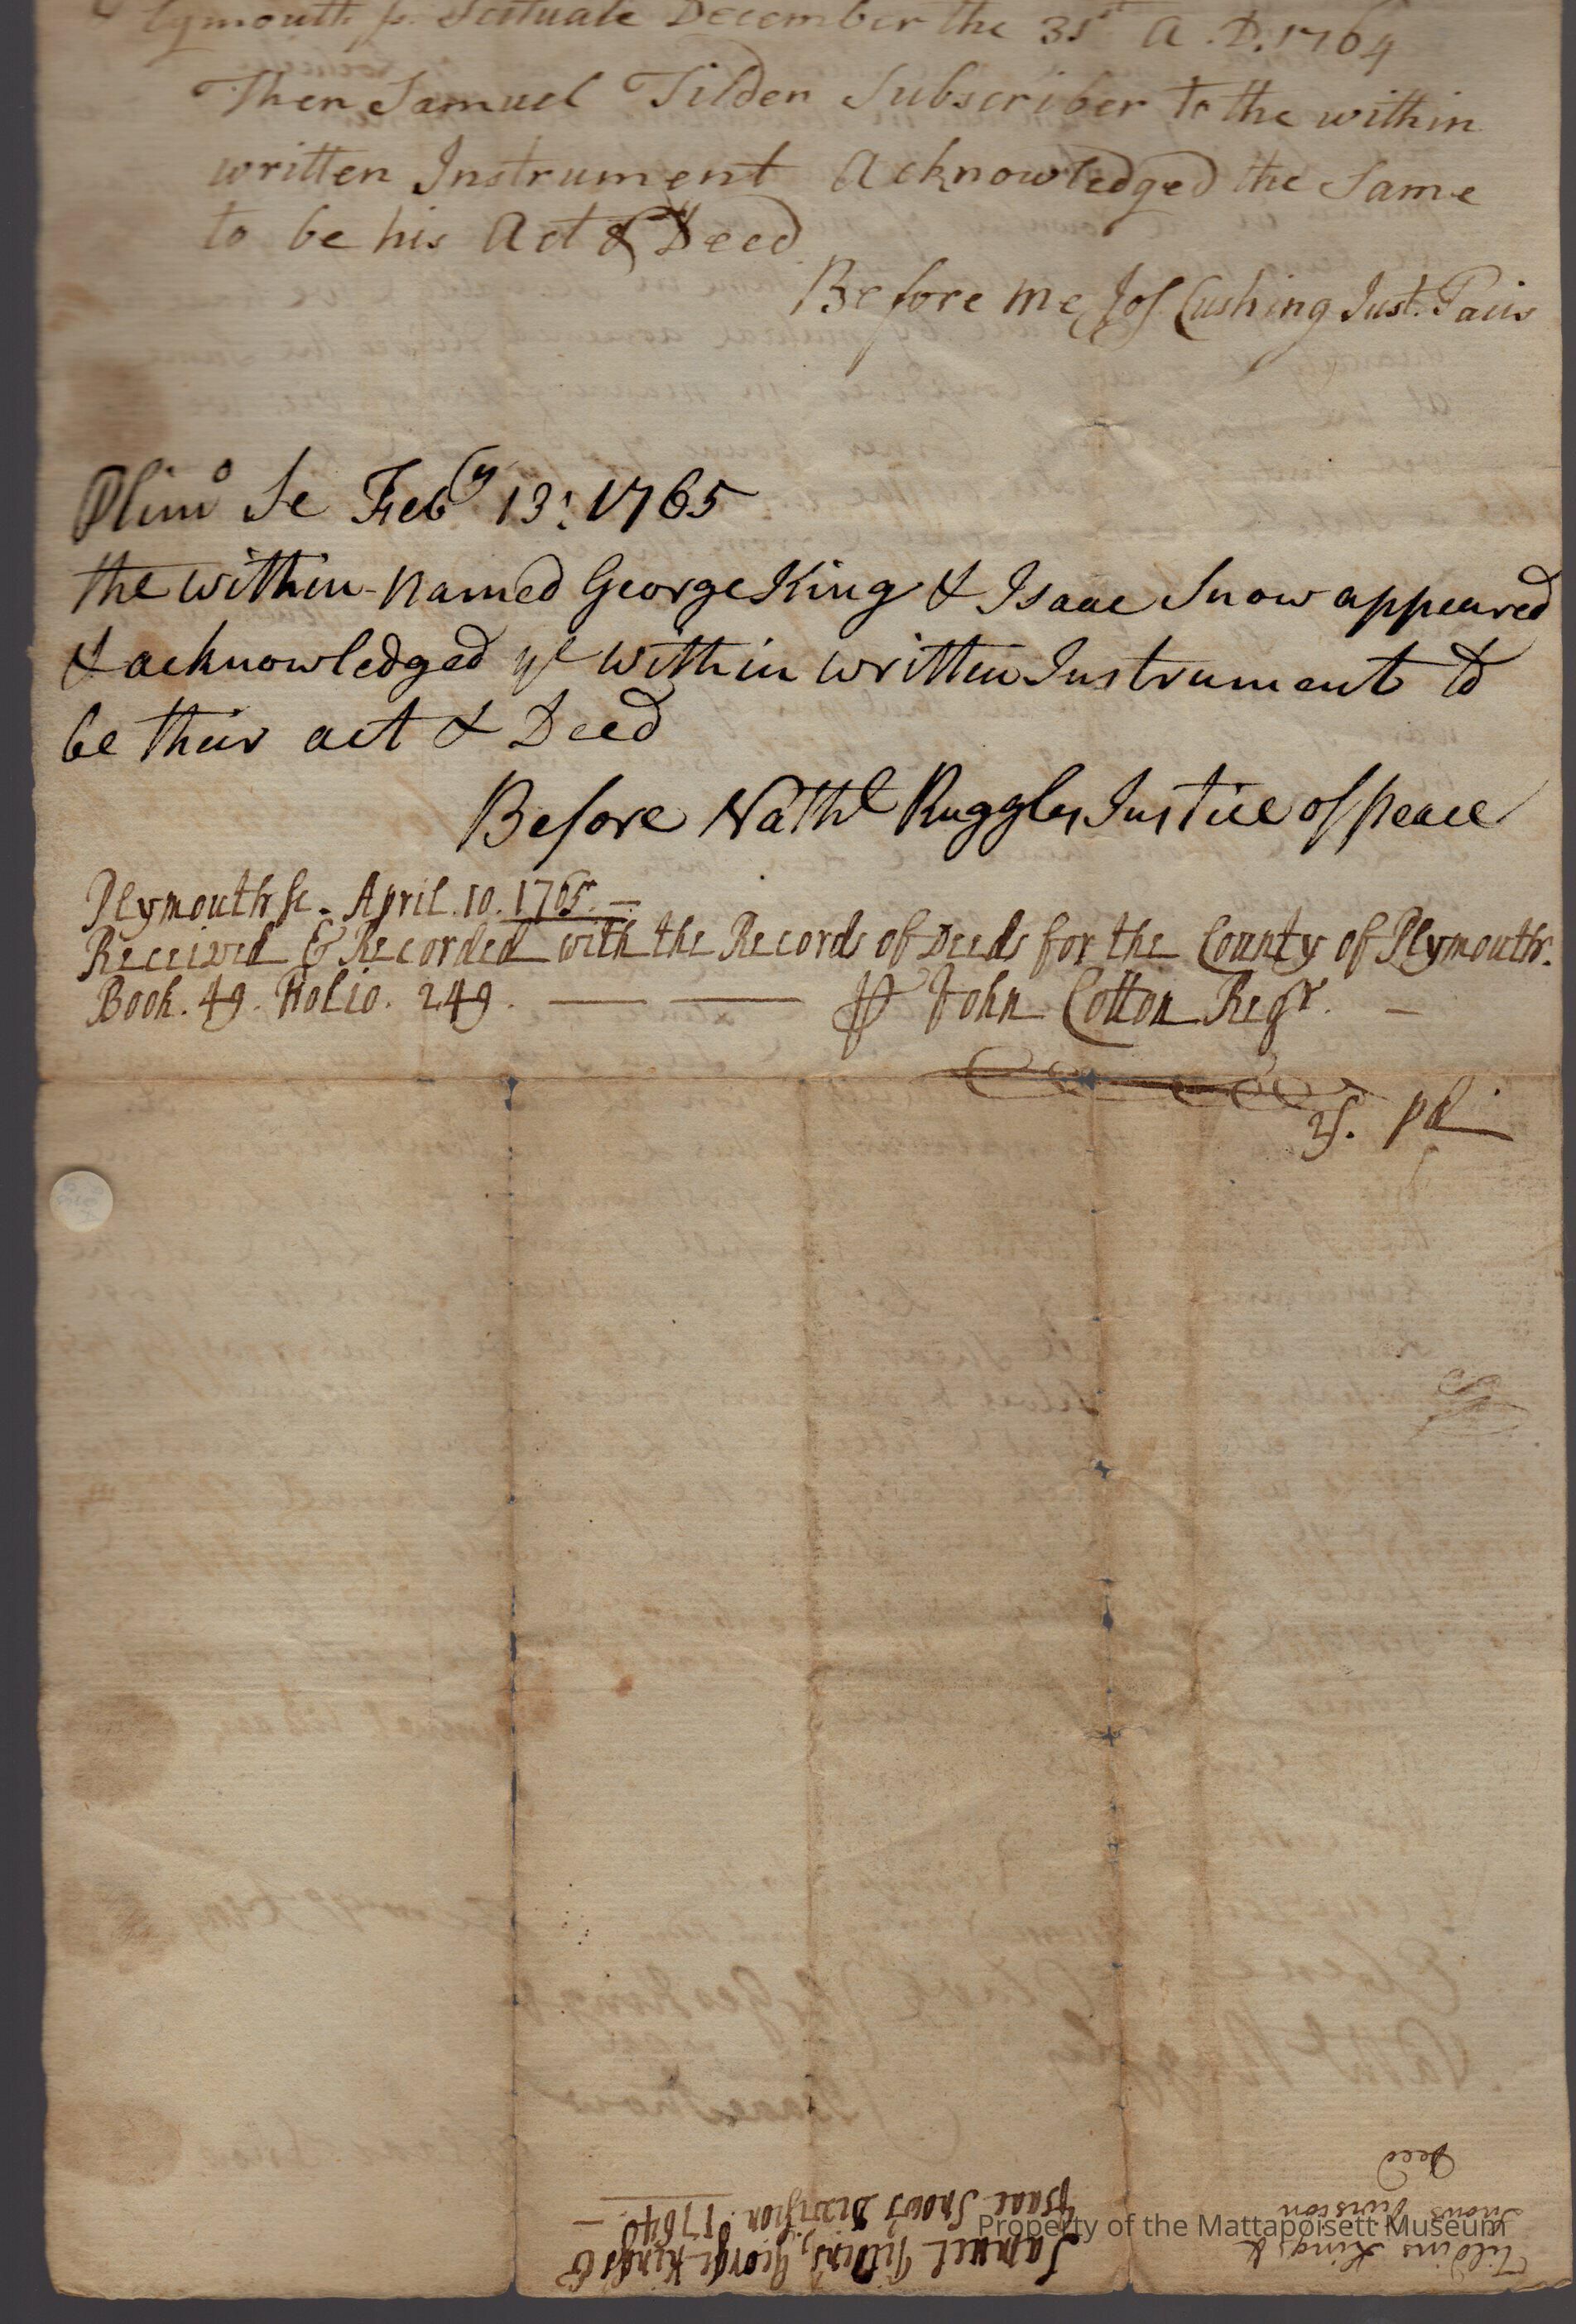 Plymouth ss. Scituate December the 31st A.D. 1764
Then Samuel Tilden Subscriber to the within
written Instrument Acknowledged the Same
to be his Act & Deed
Before me Jos Cushing Just. Pacis
Plimo Sc Feby 13: 1765
the within-named George King & Isaac Snow appeared
& acknowledged ye within written Instrument to
be their act & Deed
Before Nathl Ruggles Justice of peace
Plymouth sc. April. 10. 1765. —
Received & Recorded with the Records of Deeds for the County of Plymouth.
Book. 49. Folio. 249. — — ⅌ John Cotton Regr. —
2s. pd
Samuel Tildens, George Kings &
Isaac Snows Division 1764 —
Tildins Kings &
Snows Division
Deed
Property of the Mattapoisett Museum